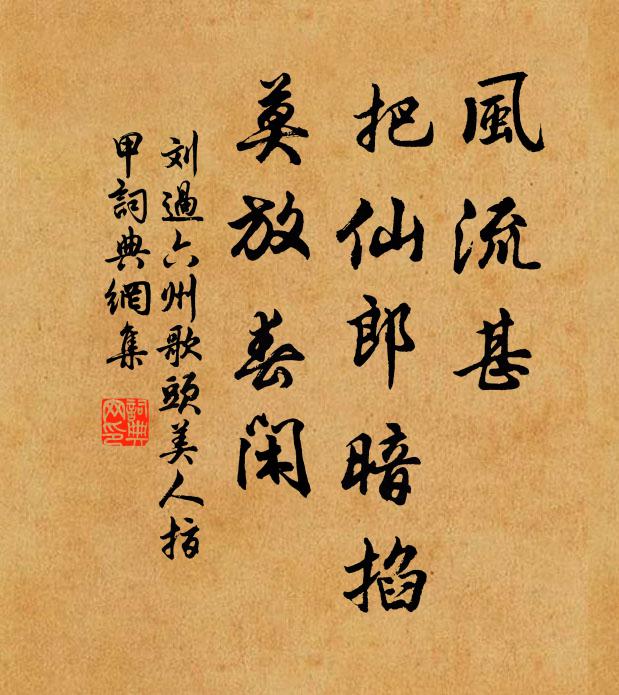 風流甚
把仙郎暗掐
莫放春闲
刘過六州歌頭美人指
甲詞典網集
詞典
网印